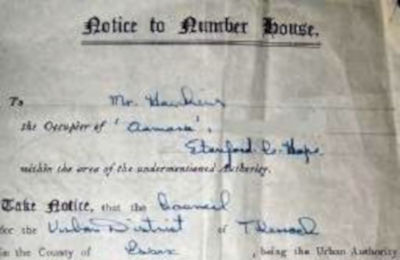 Notice to Number House.
To Mr. Hawkins
the Occupier of 'Asmara',
Stanford-le-Hope
within the area of the undermentioned Authority.
Take Notice, that the Council
for the Urban District of Thurrock
in the County of Essex, being the Urban Authority